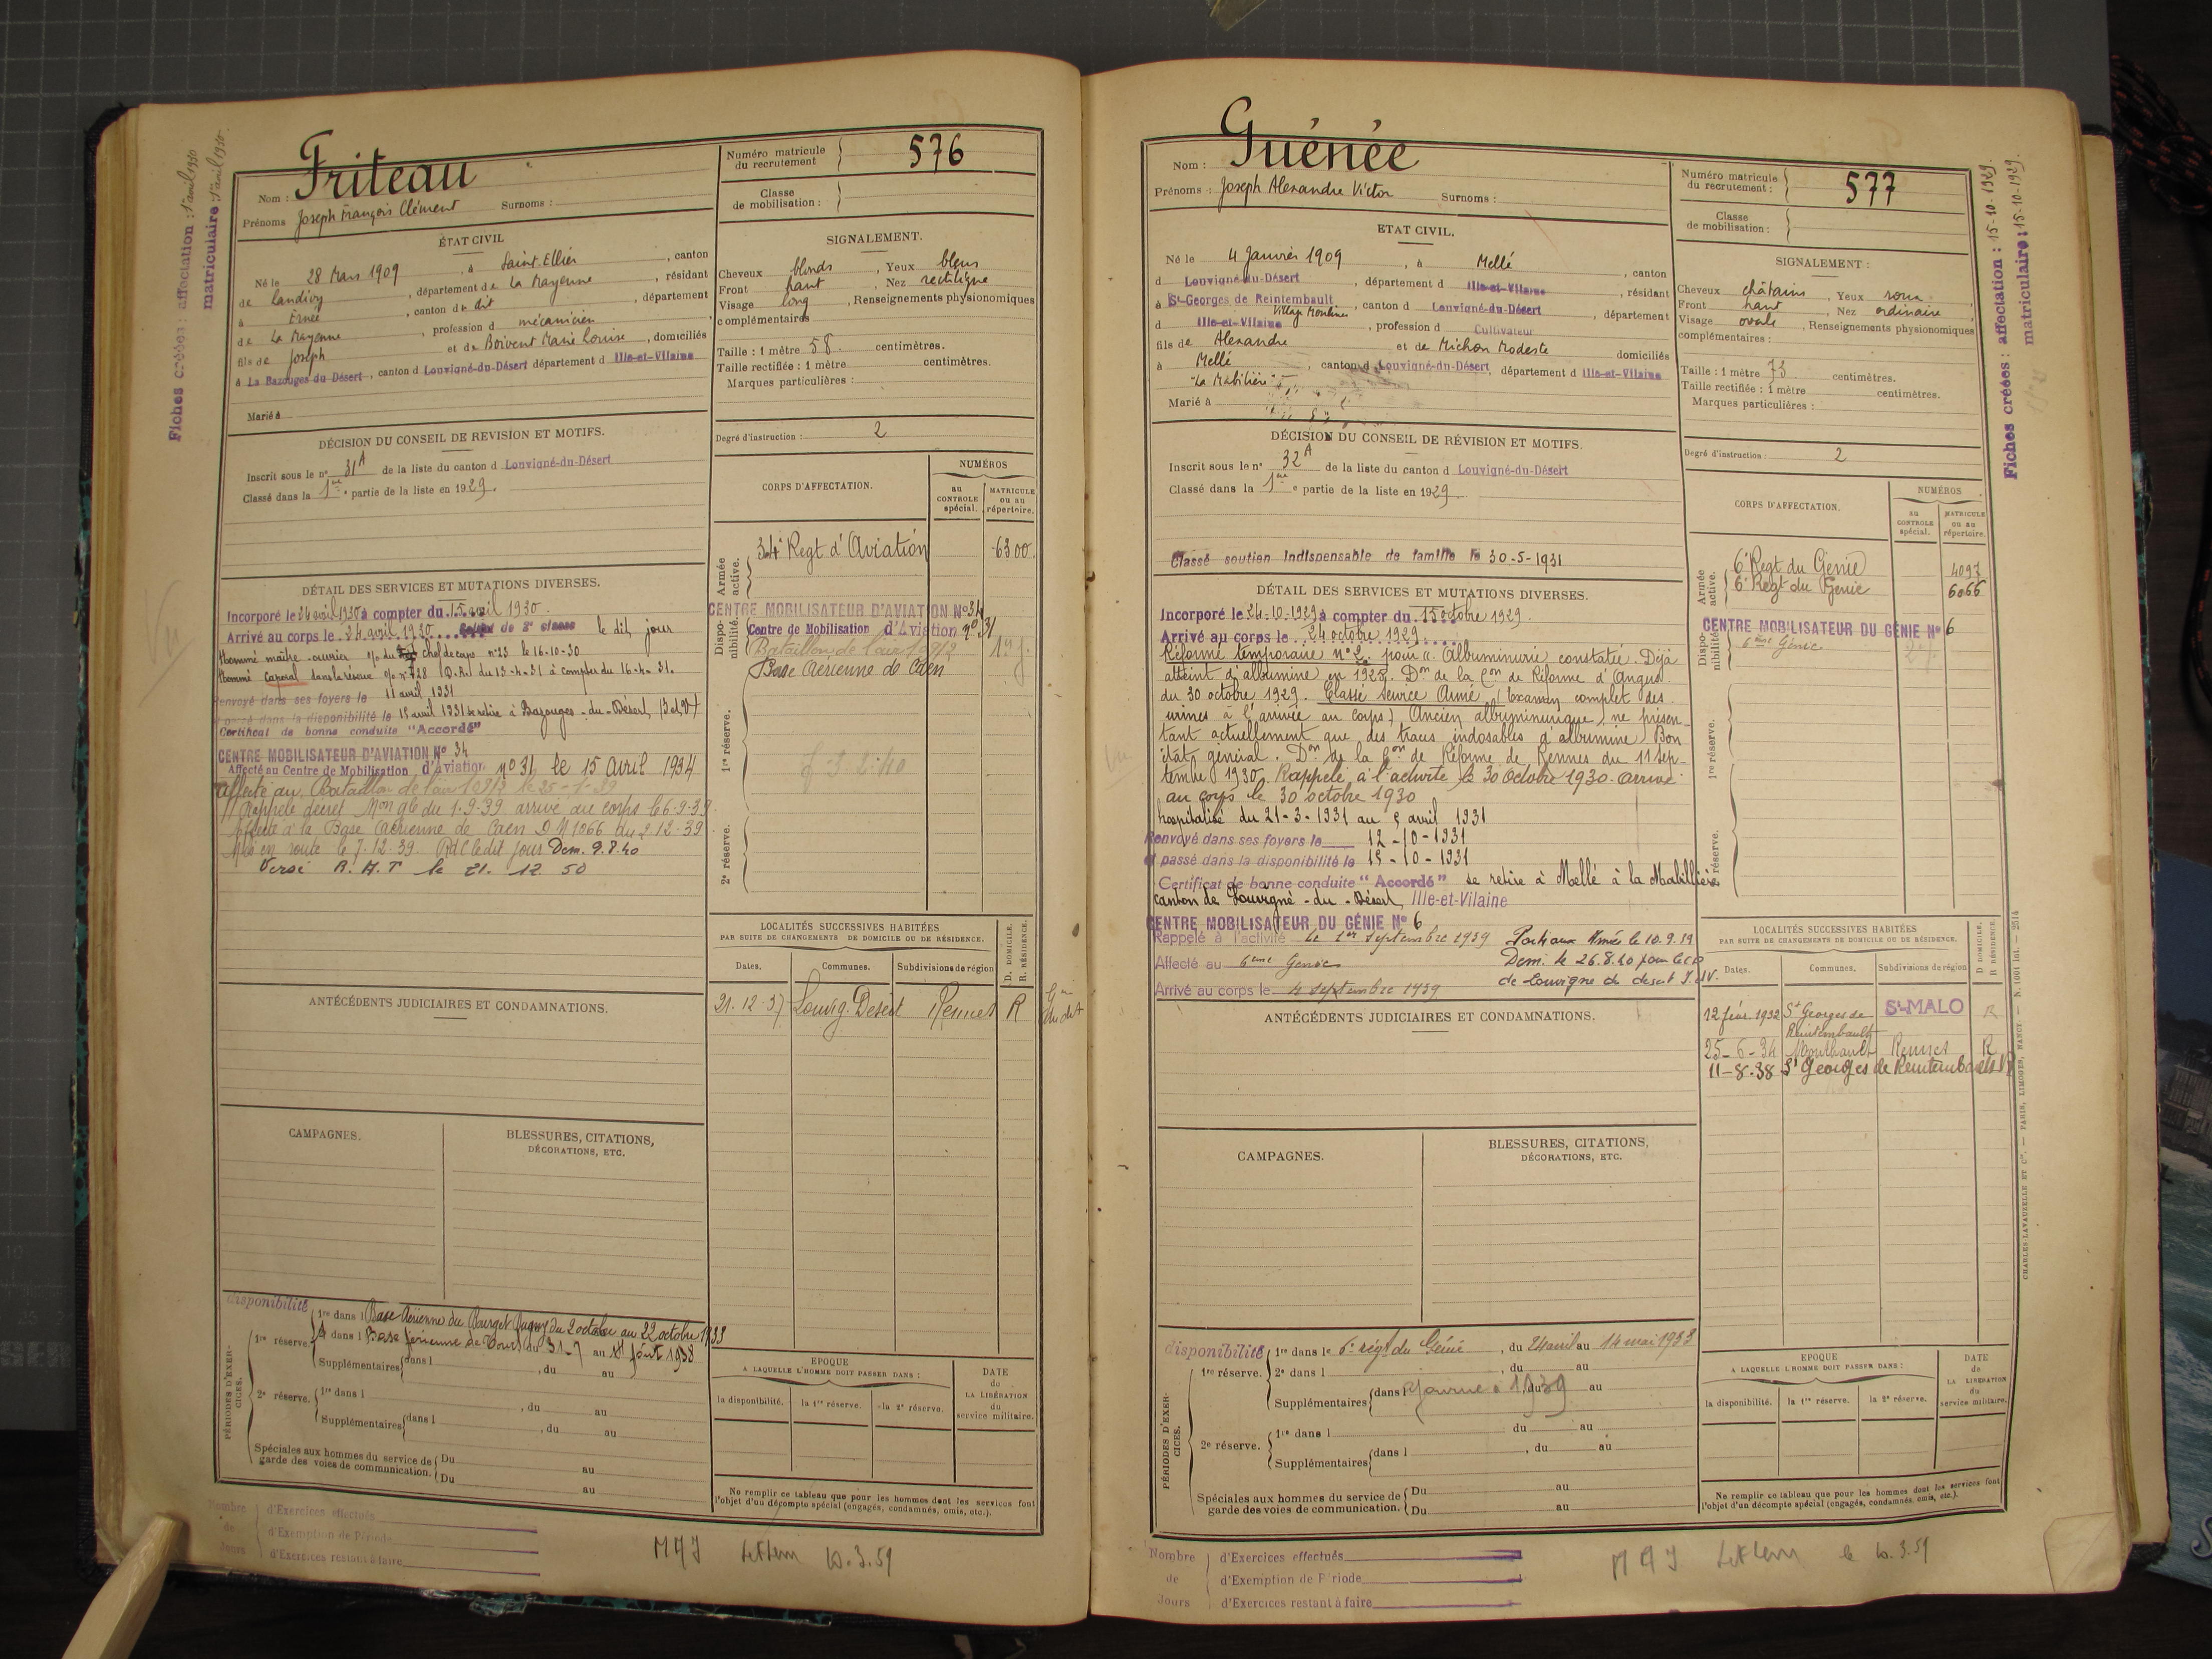 Fiches créées : affectation : 1er avril 1930
matriculaire 1er avril 1930.
Nom : Friteau
Prénoms Joseph François Clément Surnoms :
Numéro matricule du recrutement 576
Classe de mobilisation :
ÉTAT CIVIL
Né le 28 Mars 1909, à Saint Ellier, canton
de Landivy, département de La Mayenne, résidant
à Ernée, canton du dit, département
de La Mayenne, profession d mécanicien
fils de Joseph et de Boivent Marie Louise, domiciliés
à La Bazouges du Désert, canton d Louvigné-du-Désert département d Ille-et-Vilaine
Marié à
SIGNALEMENT.
Cheveux blonds, Yeux bleus
Front haut, Nez rectiligne
Visage long, Renseignements physionomiques
complémentaires
Taille : 1 mètre 58 centimètres.
Taille rectifiée : 1 mètre centimètres.
Marques particulières :
Degré d'instruction : 2
DÉCISION DU CONSEIL DE REVISION ET MOTIFS.
Inscrit sous le n° 31A de la liste du canton d Louvigné-du-Désert
Classé dans la 1re partie de la liste en 1929.
CORPS D'AFFECTATION.
NUMÉROS
au CONTROLE spécial.
MATRICULE ou au répertoire.
Armée active.
34e Regt d'Aviation 6300
Disponibilité.
CENTRE MOBILISATEUR D'AVIATION N° 34
Centre de Mobilisation d'Aviation n° 31
Bataillon de l'air
Base Aérienne de Caen
1re réserve.
2e réserve.
DÉTAIL DES SERVICES ET MUTATIONS DIVERSES.
Incorporé le 24 avril 1930 à compter du 15 avril 1930.
Arrivé au corps le 24 avril 1930 Soldat de 2e classe le dit jour
Nommé maître-ouvrier o/o du chef de corps n° 23 le 16-10-30
Nommé caporal dans la réserve o/o n° 28 D.Rel du 13-4-31 à compter du 16-4-31.
Renvoyé dans ses foyers le 11 avril 1931
et passé dans la disponibilité le 15 avril 1931 se retire à Bazouges-du-Désert, (I et V)
Certificat de bonne conduite "Accordé"
CENTRE MOBILISATEUR D'AVIATION N° 34
Affecté au Centre de Mobilisation d'Aviation n° 31 le 15 avril 1934
Affecté au Bataillon de l'air
Rappelé décret Mon gle du 1.9.39 arrivé au corps le 6.9.39.
Affecté à la Base Aérienne de Caen D.M 1066 du 2.12.39
Mis en route le 7.12.39. RdC ledit jour Dem. 9.8.40
Versé A.A.T le 21.12.50
LOCALITÉS SUCCESSIVES HABITÉES
PAR SUITE DE CHANGEMENTS DE DOMICILE OU DE RÉSIDENCE.
D. DOMICILE. R. RÉSIDENCE.
Dates. Communes. Subdivisions de région
21.12.37 Louvig. Désert Rennes R
ANTÉCÉDENTS JUDICIAIRES ET CONDAMNATIONS.
CAMPAGNES.
BLESSURES, CITATIONS,
DÉCORATIONS, ETC.
disponibilité
PÉRIODES D'EXERCICES.
1re réserve. 1re dans l Base Aérienne du Bourget Dugny du 2 octobre au 22 octobre 1933
2e dans l Base Aérienne de Tours du 31-7 au Août 1938
Supplémentaires dans l , du au
2e réserve. 1re dans l , du au
Supplémentaires dans l , du au
Spéciales aux hommes du service de garde des voies de communication. Du au
Du au
EPOQUE
A LAQUELLE L'HOMME DOIT PASSER DANS :
la disponibilité. la 1re réserve. la 2e réserve.
DATE de LA LIBÉRATION du service militaire.
Ne remplir ce tableau que pour les hommes dont les services font
l'objet d'un décompte spécial (engagés, condamnés, omis, etc.).
Nombre de Jours
d'Exercices effectués
d'Exemption de Période
d'Exercices restant à faire
10.3.59
Nom : Guénée
Prénoms : Joseph Alexandre Victor Surnoms :
Numéro matricule du recrutement : 577
Classe de mobilisation :
Fiches créées : affectation : 15-10-1929.
matriculaire : 15-10-1929.
ETAT CIVIL.
Né le 4 Janvier 1909, à Mellé, canton
d Louvigné-du-Désert, département d Ille-et-Vilaine, résidant
à St-Georges de Reintembault, canton d Louvigné-du-Désert, département
d Ille-et-Vilaine, profession d Cultivateur
fils de Alexandre et de Michon Modeste domiciliés
à Mellé, canton d Louvigné-du-Désert, département d Ille-et-Vilaine
"La Mabilière"
Marié à
SIGNALEMENT :
Cheveux châtains, Yeux roux
Front haut, Nez ordinaire
Visage ovale, Renseignements physionomiques
complémentaires :
Taille : 1 mètre 73 centimètres.
Taille rectifiée : 1 mètre centimètres.
Marques particulières :
Degré d'instruction : 2
DÉCISION DU CONSEIL DE RÉVISION ET MOTIFS.
Inscrit sous le n° 32A de la liste du canton d Louvigné-du-Désert
Classé dans la 1re partie de la liste en 1929
Classé soutien indispensable de famille le 30-5-1931
CORPS D'AFFECTATION.
NUMÉROS
au CONTROLE spécial.
MATRICULE ou au répertoire.
Armée active.
6e Regt du Génie 4097
6e Regt du Génie 6066
Disponibilité
CENTRE MOBILISATEUR DU GÉNIE N° 6
6ème Génie
1re réserve.
2e réserve.
DÉTAIL DES SERVICES ET MUTATIONS DIVERSES.
Incorporé le 24-10-1929 à compter du 15 octobre 1929.
Arrivé au corps le 24 octobre 1929.
Réformé temporaire n° 2. pour "Albuminurie constatée. Déjà
atteint d'albumine en 1928. Don de la Con de Réforme d'Angers
du 30 octobre 1929. Classé Service Armé (Examen complet des
urines à l'arrivée au corps) Ancien albuminurique ne présen-
tant actuellement que des traces indosables d'albumine) Bon
état général. Don de la Con de Réforme de Rennes du 11 sep-
tembre 1930. Rappelé à l'activité le 30 Octobre 1930. arrivé
au corps le 30 octobre 1930
hospitalisé du 21-3-1931 au 5 avril 1931
Renvoyé dans ses foyers le 12-10-1931
et passé dans la disponibilité le 15-10-1931
Certificat de bonne conduite "Accordé" se retire à Mellé à la Mabillière
canton de Louvigné-du-Désert, Ille-et-Vilaine
CENTRE MOBILISATEUR DU GÉNIE N° 6
Rappelé à l'activité le 1er septembre 1939 Parti aux Armées le 10.9.39
Affecté au 6ème Génie Dem. le 26.8.40 par le
Arrivé au corps le 4 septembre 1939 de Louvigné du désert I. et V.
LOCALITÉS SUCCESSIVES HABITÉES
PAR SUITE DE CHANGEMENTS DE DOMICILE OU DE RÉSIDENCE.
D. DOMICILE. R. RÉSIDENCE.
Dates. Communes. Subdivisions de région
12 févr. 1932 St Georges de Reintembault St-MALO R
25-6-34 Monthault Rennes R
11-8-38 St Georges de Reintembault R
ANTÉCÉDENTS JUDICIAIRES ET CONDAMNATIONS.
CAMPAGNES.
BLESSURES, CITATIONS,
DÉCORATIONS, ETC.
CHARLES-LAVAUZELLE ET Cie. — PARIS, LIMOGES, NANCY.
disponibilité
PÉRIODES D'EXERCICES.
1re réserve. 1re dans le 6e régt du Génie, du 24 avril au 14 mai 1933
2e dans l , du au
Supplémentaires dans l Ajourné à 1939 du au
2e réserve. 1re dans l du au
Supplémentaires dans l , du au
Spéciales aux hommes du service de garde des voies de communication. Du au
Du au
EPOQUE
A LAQUELLE L'HOMME DOIT PASSER DANS :
la disponibilité. la 1re réserve. la 2e réserve.
DATE de LA LIBÉRATION du service militaire.
Ne remplir ce tableau que pour les hommes dont les services font
l'objet d'un décompte spécial (engagés, condamnés, omis, etc.).
Nombre de Jours
d'Exercices effectués
d'Exemption de Période
d'Exercices restant à faire
le 10.3.59